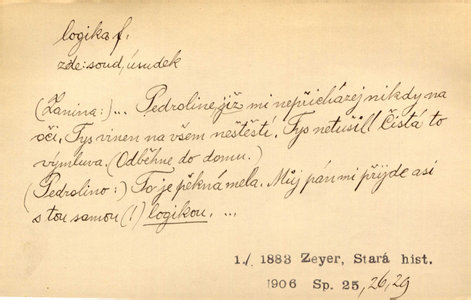 logika f.
zde: soud, úsudek
(Žanina:)... Pedroline, již mi nepřicházej nikdy na
oči. Tys vinen na všem neštěstí. Tys netušil! Čistá to
výmluva. (Odběhne do domu.)
(Pedrolino:) To je pěkná mela. Můj pán mi přijde asi
s tou samou (!) logikou. ...
1./ 1883 Zeyer, Stará hist.
1906 Sp. 25, 26, 29